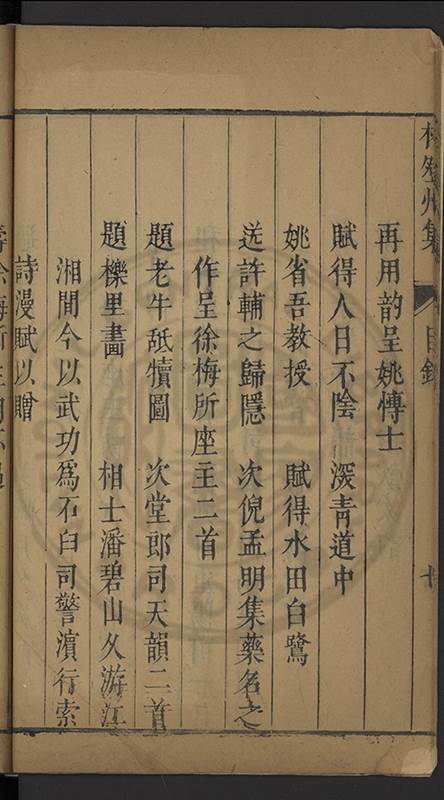 再用韵呈姚博士
賦得人日不陰　深青道中
姚省吾教授　賦得水田白鷺
送許輔之歸隱　次倪孟明集藥名之
作呈徐梅所座主二首
題老牛䑛犢圖　次堂郎司天韻二首
題櫟里畵　相士潘碧山久游江
湘間今以武功爲石臼司警濵行索
詩漫賦以贈